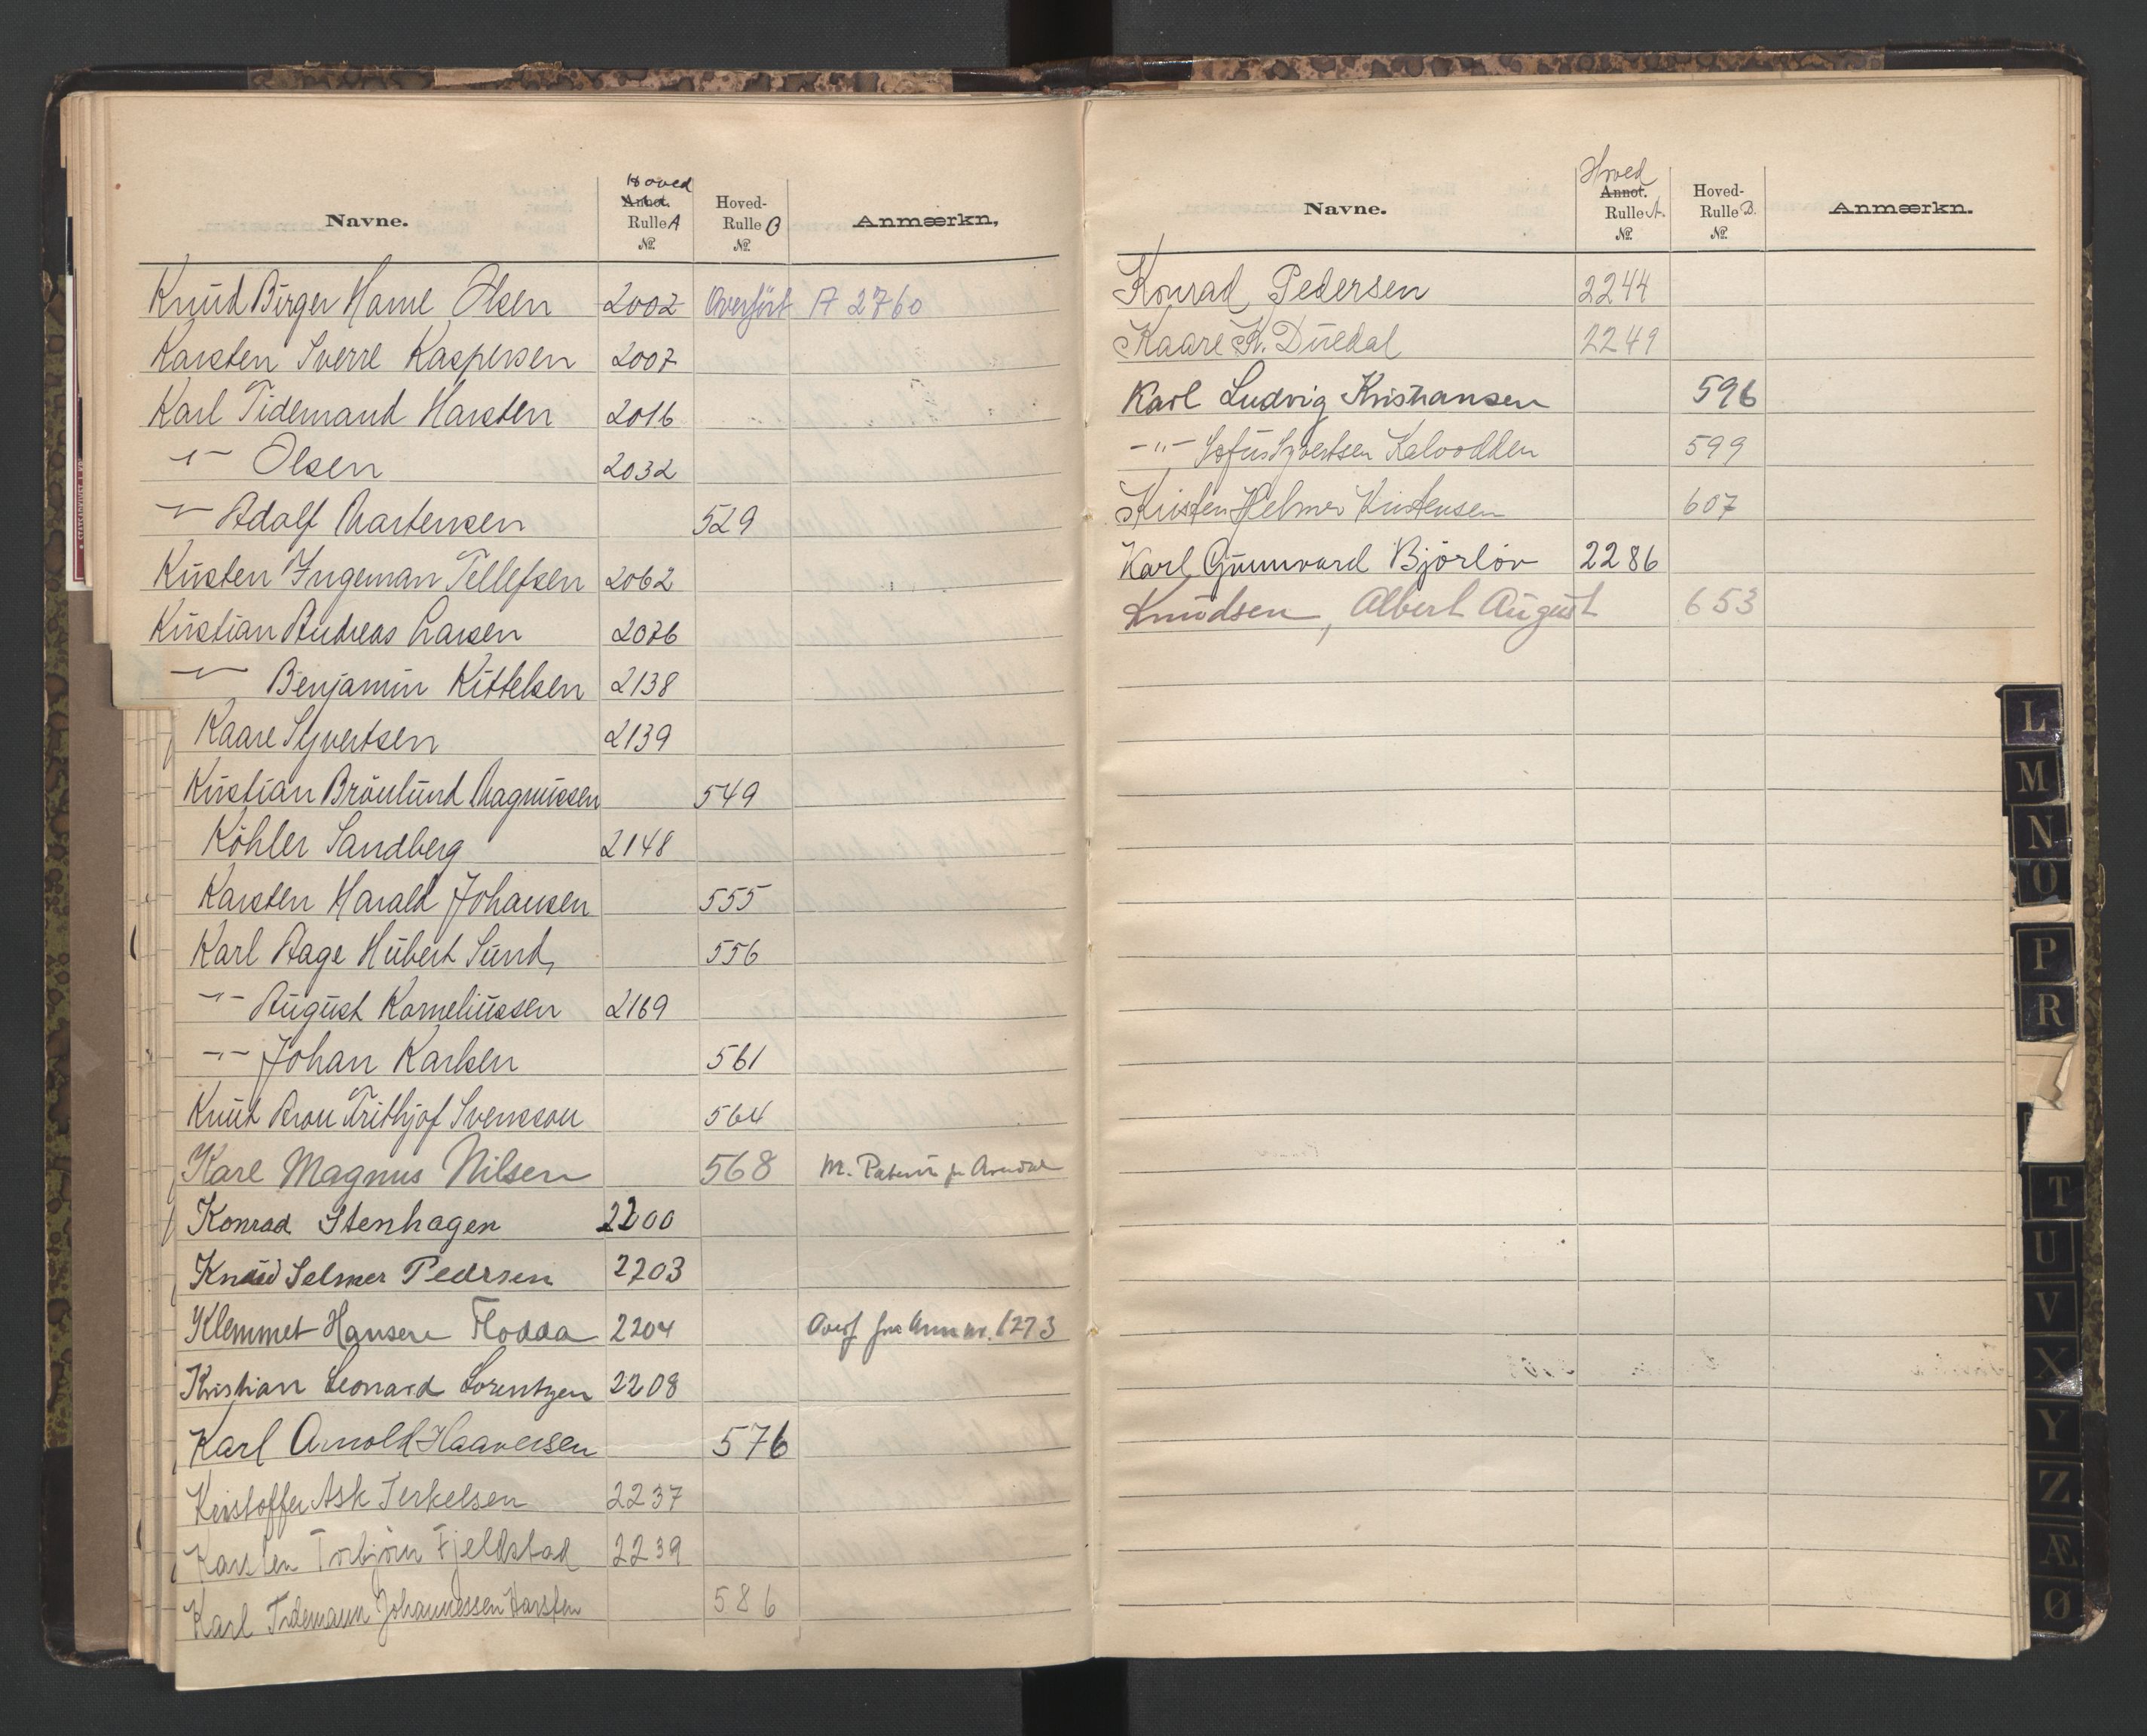 Navne. Hoved Annot. Rulle A № Hoved-Rulle B № Anmærkn.
Knud Birger Hame Olsen 2002 Overført A 2760
Karsten Sverre Kaspersen 2007
Karl Tidemand Harsten 2016
-"- Olsen 2032
-"- Adolf Martensen 529
Kristen Ingeman Tellefsen 2062
Kristian Andreas Larsen 2076
-"- Benjamin Kittelsen 2138
Kaare Syvertsen 2139
Kristian Brönlund Magnussen 549
Köhler Sandberg 2148
Karsten Harald Johansen 555
Karl Aage Hubert Sund, 556
-"- August Korneliussen 2169
-"- Johan Karlsen 561
Knut Aron Frithjof Svensson 564
Karl Magnus Nilsen 568 M. Patent fr Arendal
Konrad Stenhagen 2200
Knud Selmer Pedersen 2203
Klemmet Hansen Flodda 2204 Overf fra Ann nr. 1273
Kristian Leonard Lorentzen 2208
Karl Arnold Haaversen 576
Kristoffer Ask Terkelsen 2237
Karsten Torbjörn Fjeldstad 2239
Karl Tidemann Johannessen Harsten 586
Navne. Hoved Annot. Rulle A. № Hoved-Rulle B. № Anmærkn.
Konrad Pedersen 2244
Kaare K. Duedal 2249
Karl Ludvig Kristiansen 596
-"- Sofus Syvertsen Kalvodden 599
Kristen Helmer Kristensen 607
Karl Gunnvard Björlöv 2286
Knudsen, Albert August 653
L
M
N
O
P
R
T
U
V
X
Y
Z
Æ
Ø